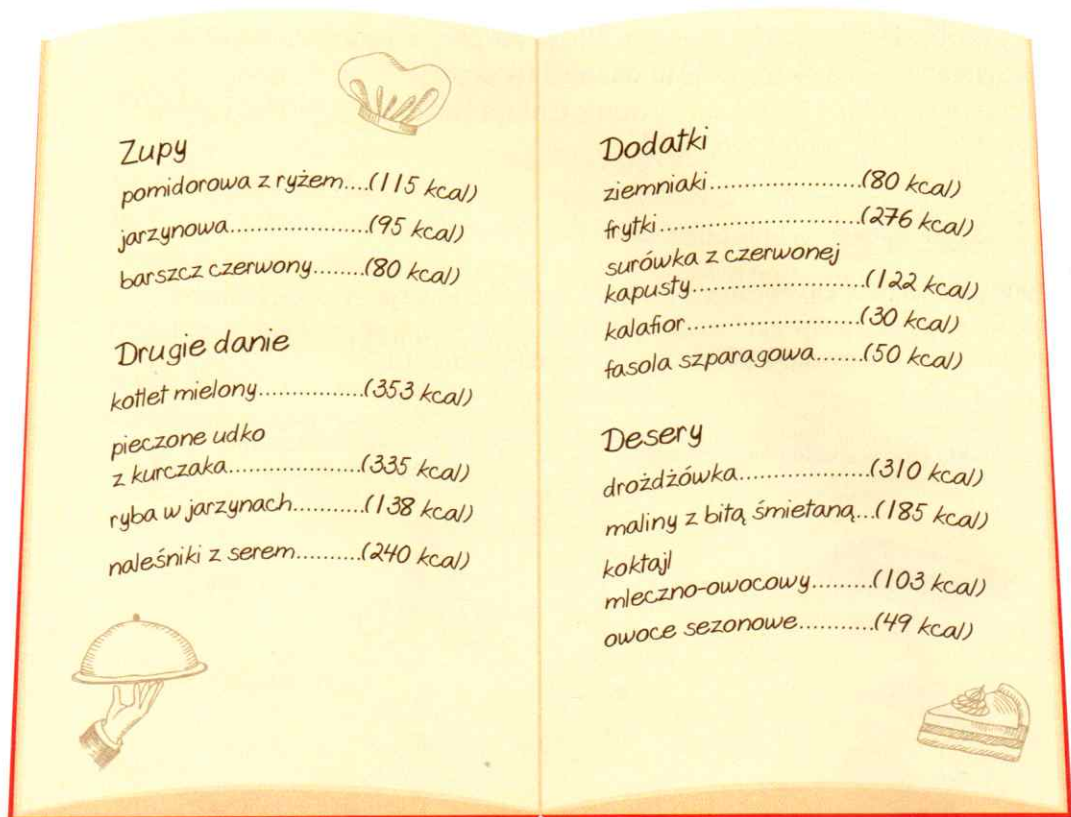 Zupy
pomidorowa z ryżem....(115 kcal)
jarzynowa.....................(95 kcal)
barszcz czerwony........(80 kcal)
Drugie danie
kotlet mielony................(353 kcal)
pieczone udko
z kurczaka....................(335 kcal)
ryba w jarzynach...........(138 kcal)
naleśniki z serem..........(240 kcal)
Dodatki
ziemniaki.......................(80 kcal)
frytki..............................(276 kcal)
surówka z czerwonej
kapusty..........................(122 kcal)
kalafior...........................(30 kcal)
fasola szparagowa.......(50 kcal)
Desery
drożdżówka...................(310 kcal)
maliny z bitą śmietaną...(185 kcal)
koktajl
mleczno-owocowy.........(103 kcal)
owoce sezonowe...........(49 kcal)